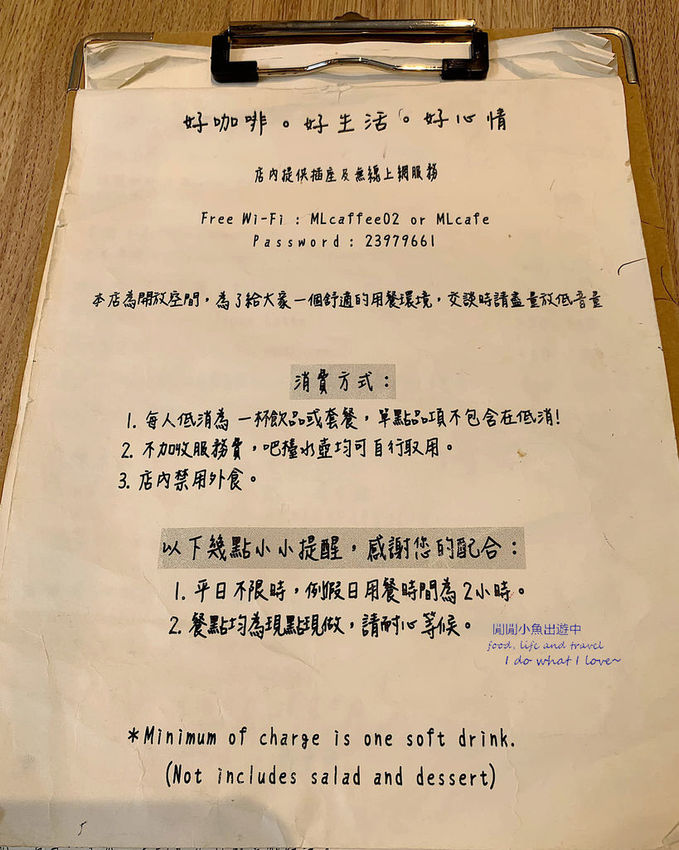 好咖啡。好生活。好心情
店內提供插座及無線上網服務
Free Wi-Fi : MLcaffee02 or MLcafe
Password : 23979661
本店為開放空間，為了給大家一個舒適的用餐環境，交談時請盡量放低音量
消費方式：
1. 每人低消為 一杯飲品或套餐，單點品項不包含在低消!
2. 不加收服務費，吧檯水壺均可自行取用。
3. 店內禁用外食。
以下幾點小小提醒，感謝您的配合：
1. 平日不限時，例假日用餐時間為2小時。
2. 餐點均為現點現做，請耐心等候。
閒閒小魚出遊中
food, life and travel
I do what I love~
*Minimum of charge is one soft drink.
(Not includes salad and dessert)